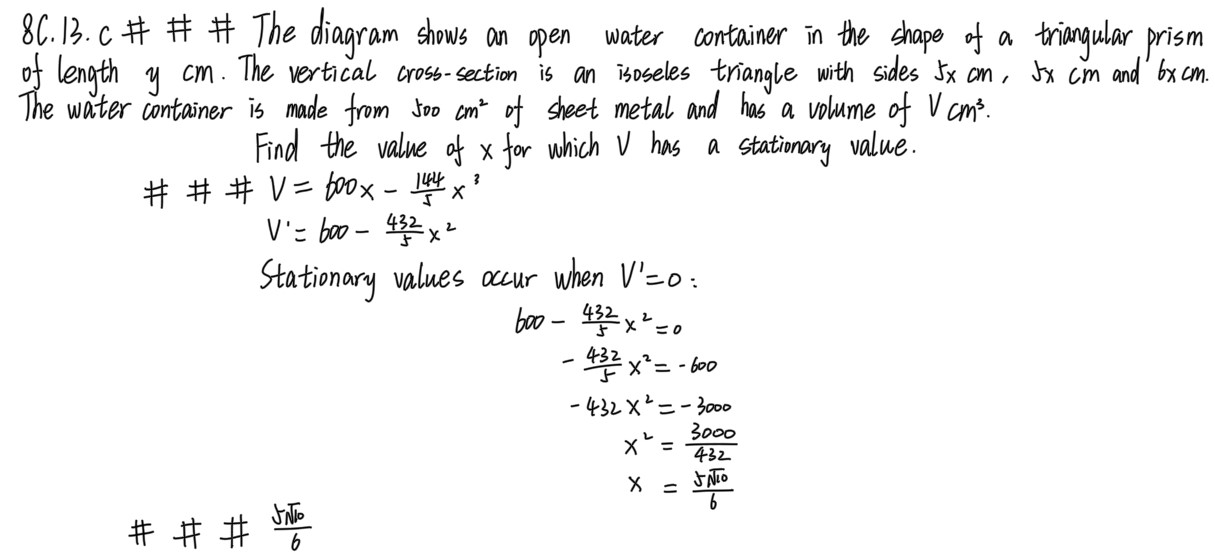 8C.13.c # # # The diagram shows an open water container in the shape of a triangular prism
of length y cm. The vertical cross-section is an isoseles triangle with sides 5x cm, 5x cm and 6x cm.
The water container is made from 500 cm² of sheet metal and has a volume of V cm³.
Find the value of x for which V has a stationary value.
# # # V = 600x - \frac{144}{5}x³
V' = 600 - \frac{432}{5}x²
Stationary values occur when V'=0:
600 - \frac{432}{5}x² = 0
- \frac{432}{5}x² = -600
-432x² = -3000
x² = \frac{3000}{432}
x = \frac{5\sqrt{10}}{6}
# # # \frac{5\sqrt{10}}{6}